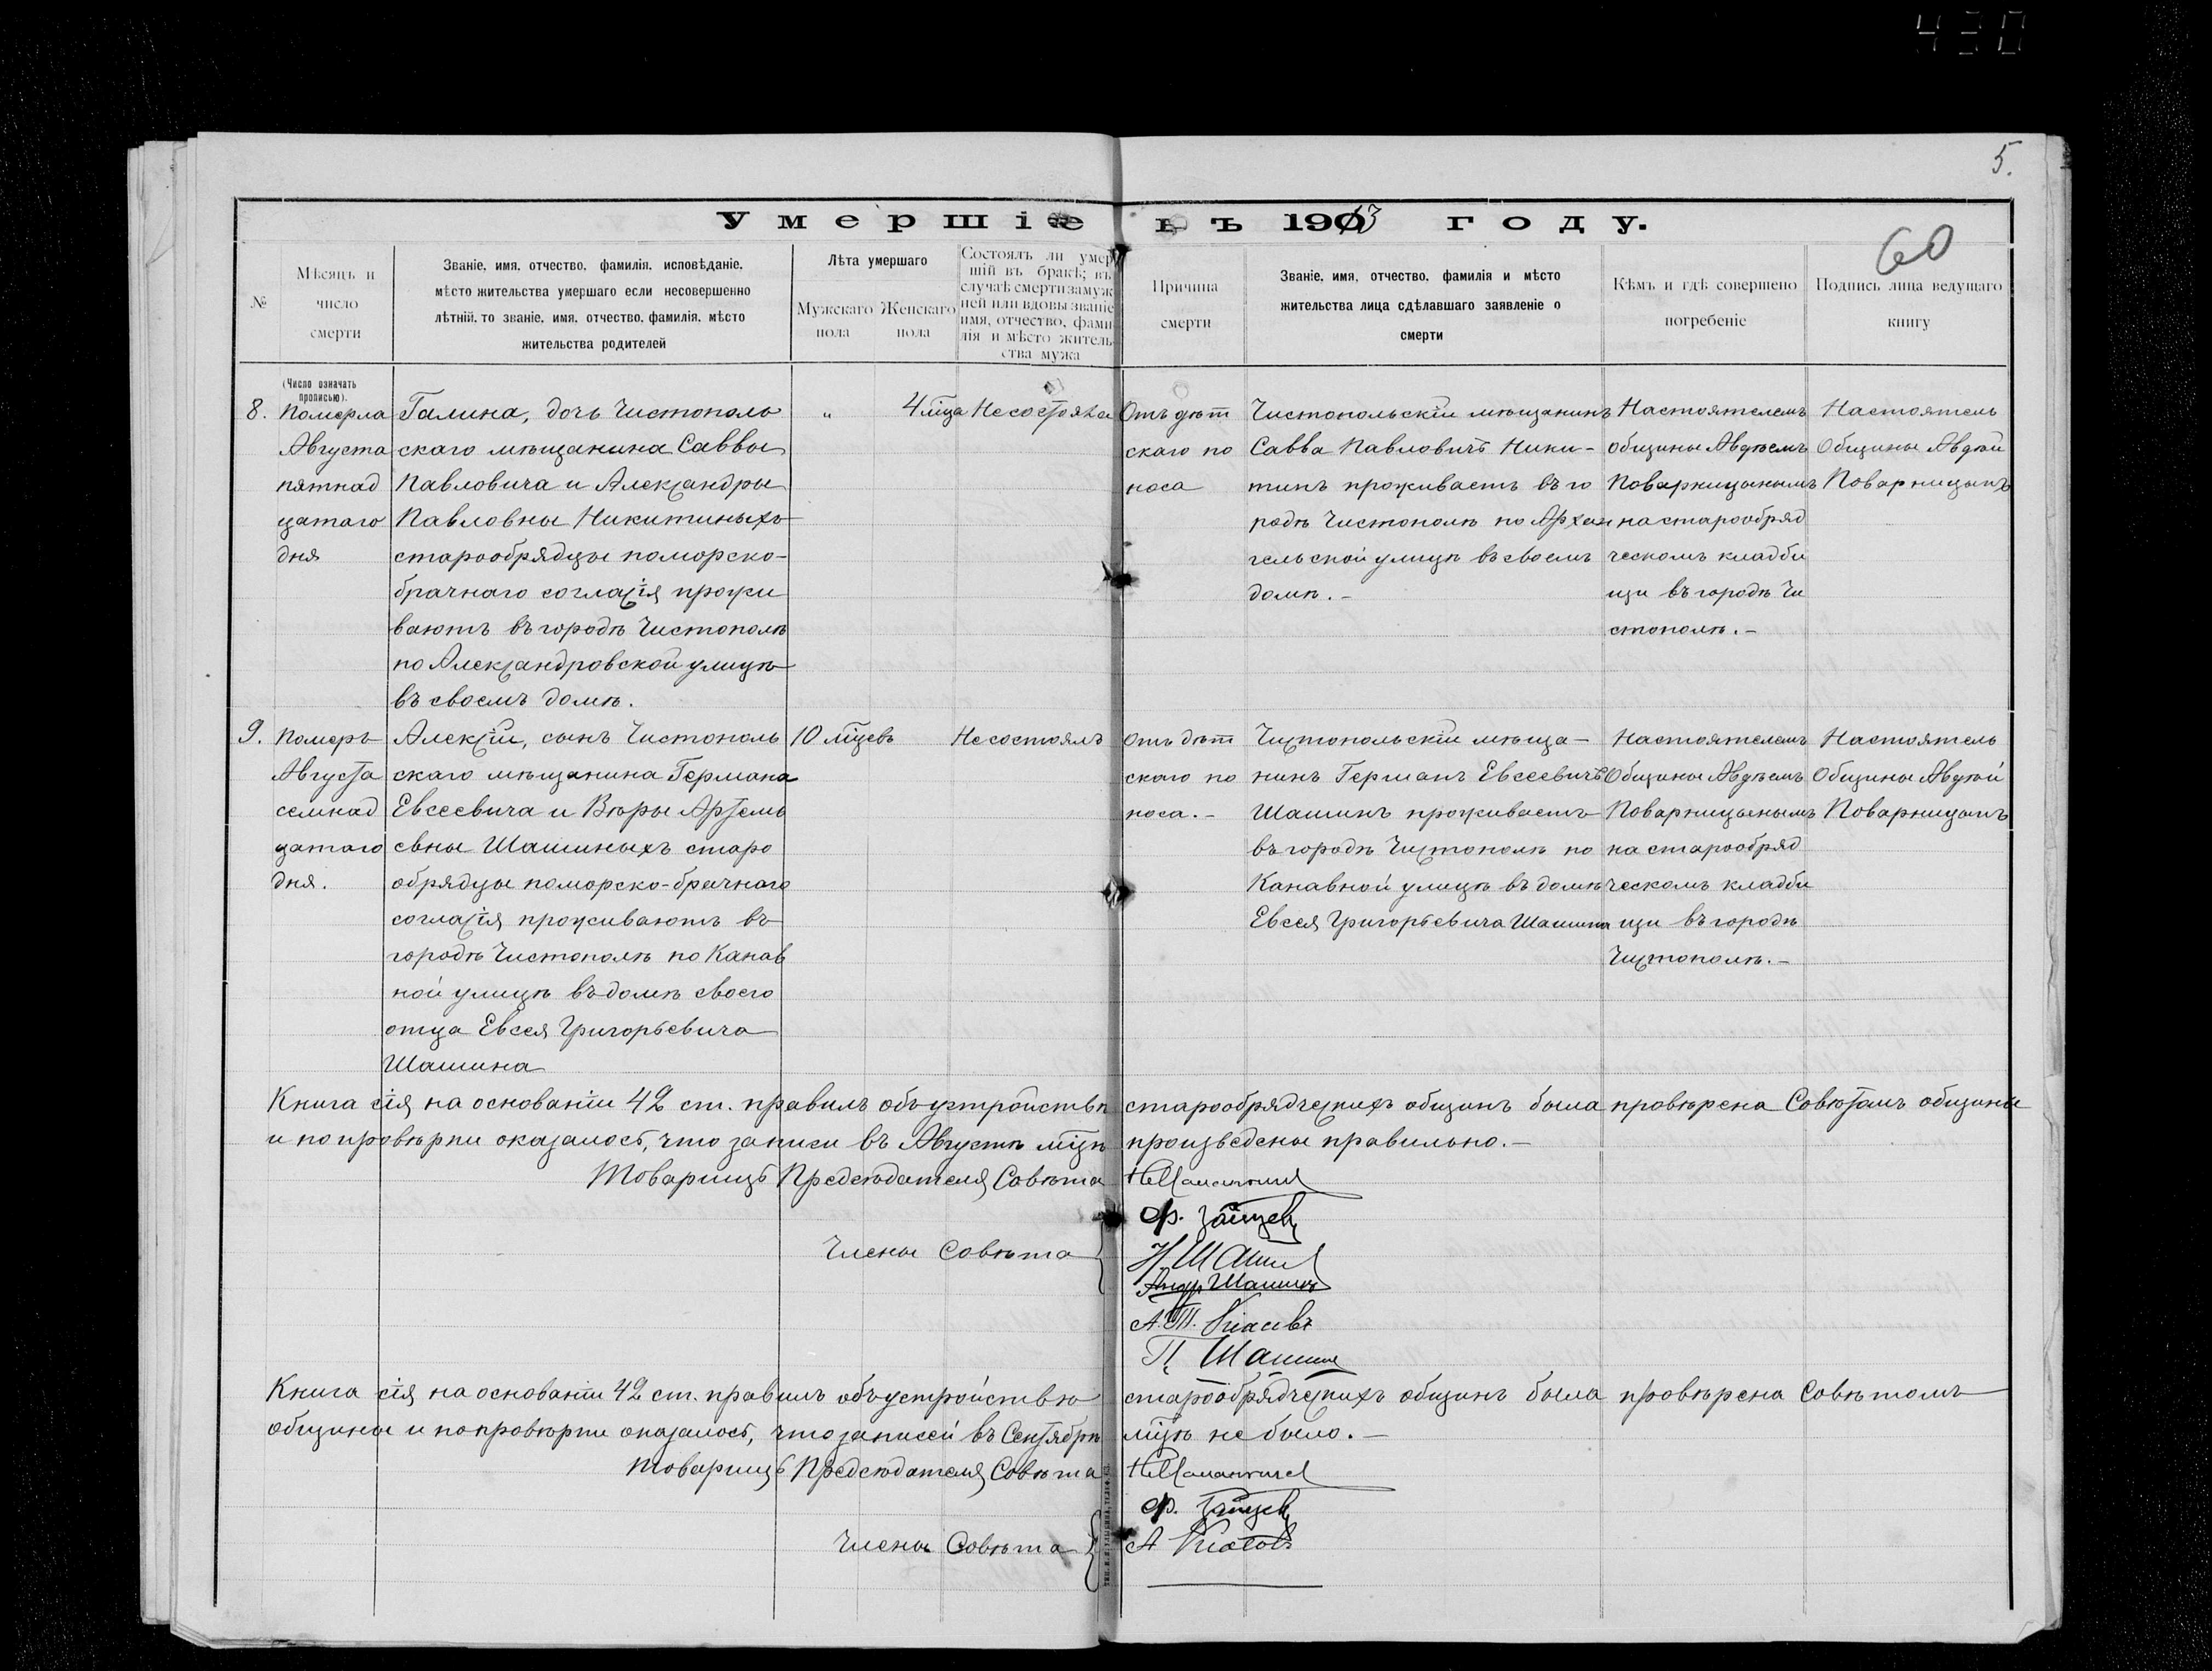 430
5.
Умершіе въ 1913 году.
60
№
Мѣсяцъ и
число
смерти
Званіе, имя, отчество, фамилія, исповѣданіе,
мѣсто жительства умершаго если несовершенно
лѣтній, то званіе, имя, отчество, фамилія, мѣсто
жительства родителей
Лѣта умершаго
Мужскаго
пола
Женскаго
пола
Состоялъ ли умер
шій въ бракѣ; въ
случаѣ смерти замуж
ней или вдовы званіе
имя, отчество, фами
лія и мѣсто житель
ства мужа
Причина
смерти
Званіе, имя, отчество, фамилія и мѣсто
жительства лица сдѣлавшаго заявленіе о
смерти
Кѣмъ и гдѣ совершено
погребеніе
Подпись лица ведущаго
книгу
(Число означать
прописью).
8.
Померла
Августа
пятнад
цатаго
дня
Галина, дочь Чистополь
скаго мѣщанина Саввы
Павловича и Александры
Павловны Никитиныхъ
старообрядцы поморско-
брачнаго согласія прожи
ваютъ въ городѣ Чистополѣ
по Александровской улицѣ
въ своемъ домѣ.
"
4 мца
Не состояла
Отъ дѣт
скаго по
носа
Чистопольскій мѣщанинъ
Савва Павловичъ Ники-
тинъ проживаетъ въ го
родѣ Чистополѣ по Архан
гельской улицѣ въ своемъ
домѣ. -
Настоятелемъ
общины Авдѣемъ
Поварницынымъ
на старообряд
ческомъ кладби
щи въ городѣ Чи
стополѣ. -
Настоятель
Общины Авдѣй
Поварницынъ
9.
Померъ
Августа
семнад
цатаго
дня.
Алексій, сынъ Чистополь
скаго мѣщанина Германа
Евсеевича и Вѣры Артемь
евны Шашиныхъ старо
обрядцы поморско-брачнаго
согласія проживаютъ въ
городѣ Чистополѣ по Канав
ной улицѣ въ домѣ своего
отца Евсея Григорьевича
Шашина
10 мцевъ
Не состоялъ
Отъ дѣт
скаго по
носа. -
Чистопольскій мѣща-
нинъ Германъ Евсеевичъ
Шашинъ проживаетъ
въ городѣ Чистополѣ по
Канавной улицѣ въ домѣ
Евсея Григорьевича Шашина
Настоятелемъ
Общины Авдѣемъ
Поварницынымъ
на старообряд
ческомъ кладби
щи въ городѣ
Чистополѣ. -
Настоятель
Общины Авдѣй
Поварницынъ
Книга сія на основаніи 42 ст. правилъ объ устройствѣ старообрядческихъ общинъ была провѣрена Совѣтомъ общины
и по провѣрки оказалось, что записи въ Августѣ мцѣ произведены правильно. -
Товарищъ Предсѣдателя Совѣта
Ф. Зайцевъ
Члены Совѣта
Н Шашин
Андр. Шашинъ
П. Шашинъ
Книга сія на основаніи 42 ст. правилъ объ устройствѣ старообрядческихъ общинъ была провѣрена Совѣтомъ
общины и по провѣрки оказалось, что записей въ Сентябрѣ мцѣ не было. -
Товарищъ Предсѣдателя Совѣта
Ф. Зайцевъ
Члены Совѣта